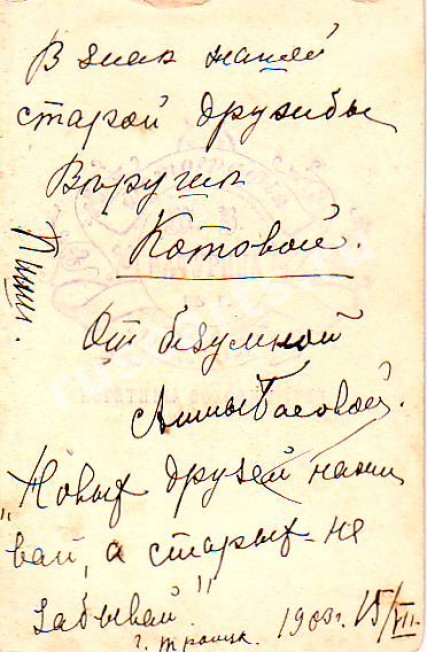 В знак нашей
старой дружбы
Вѣрушѣ
Котовой.
Пиши.
От безумной
Анны Басовой.
„Новых друзей нажи
вай, а старых - не
забывай."
г. Троицк. 1903 г. 15/VII.